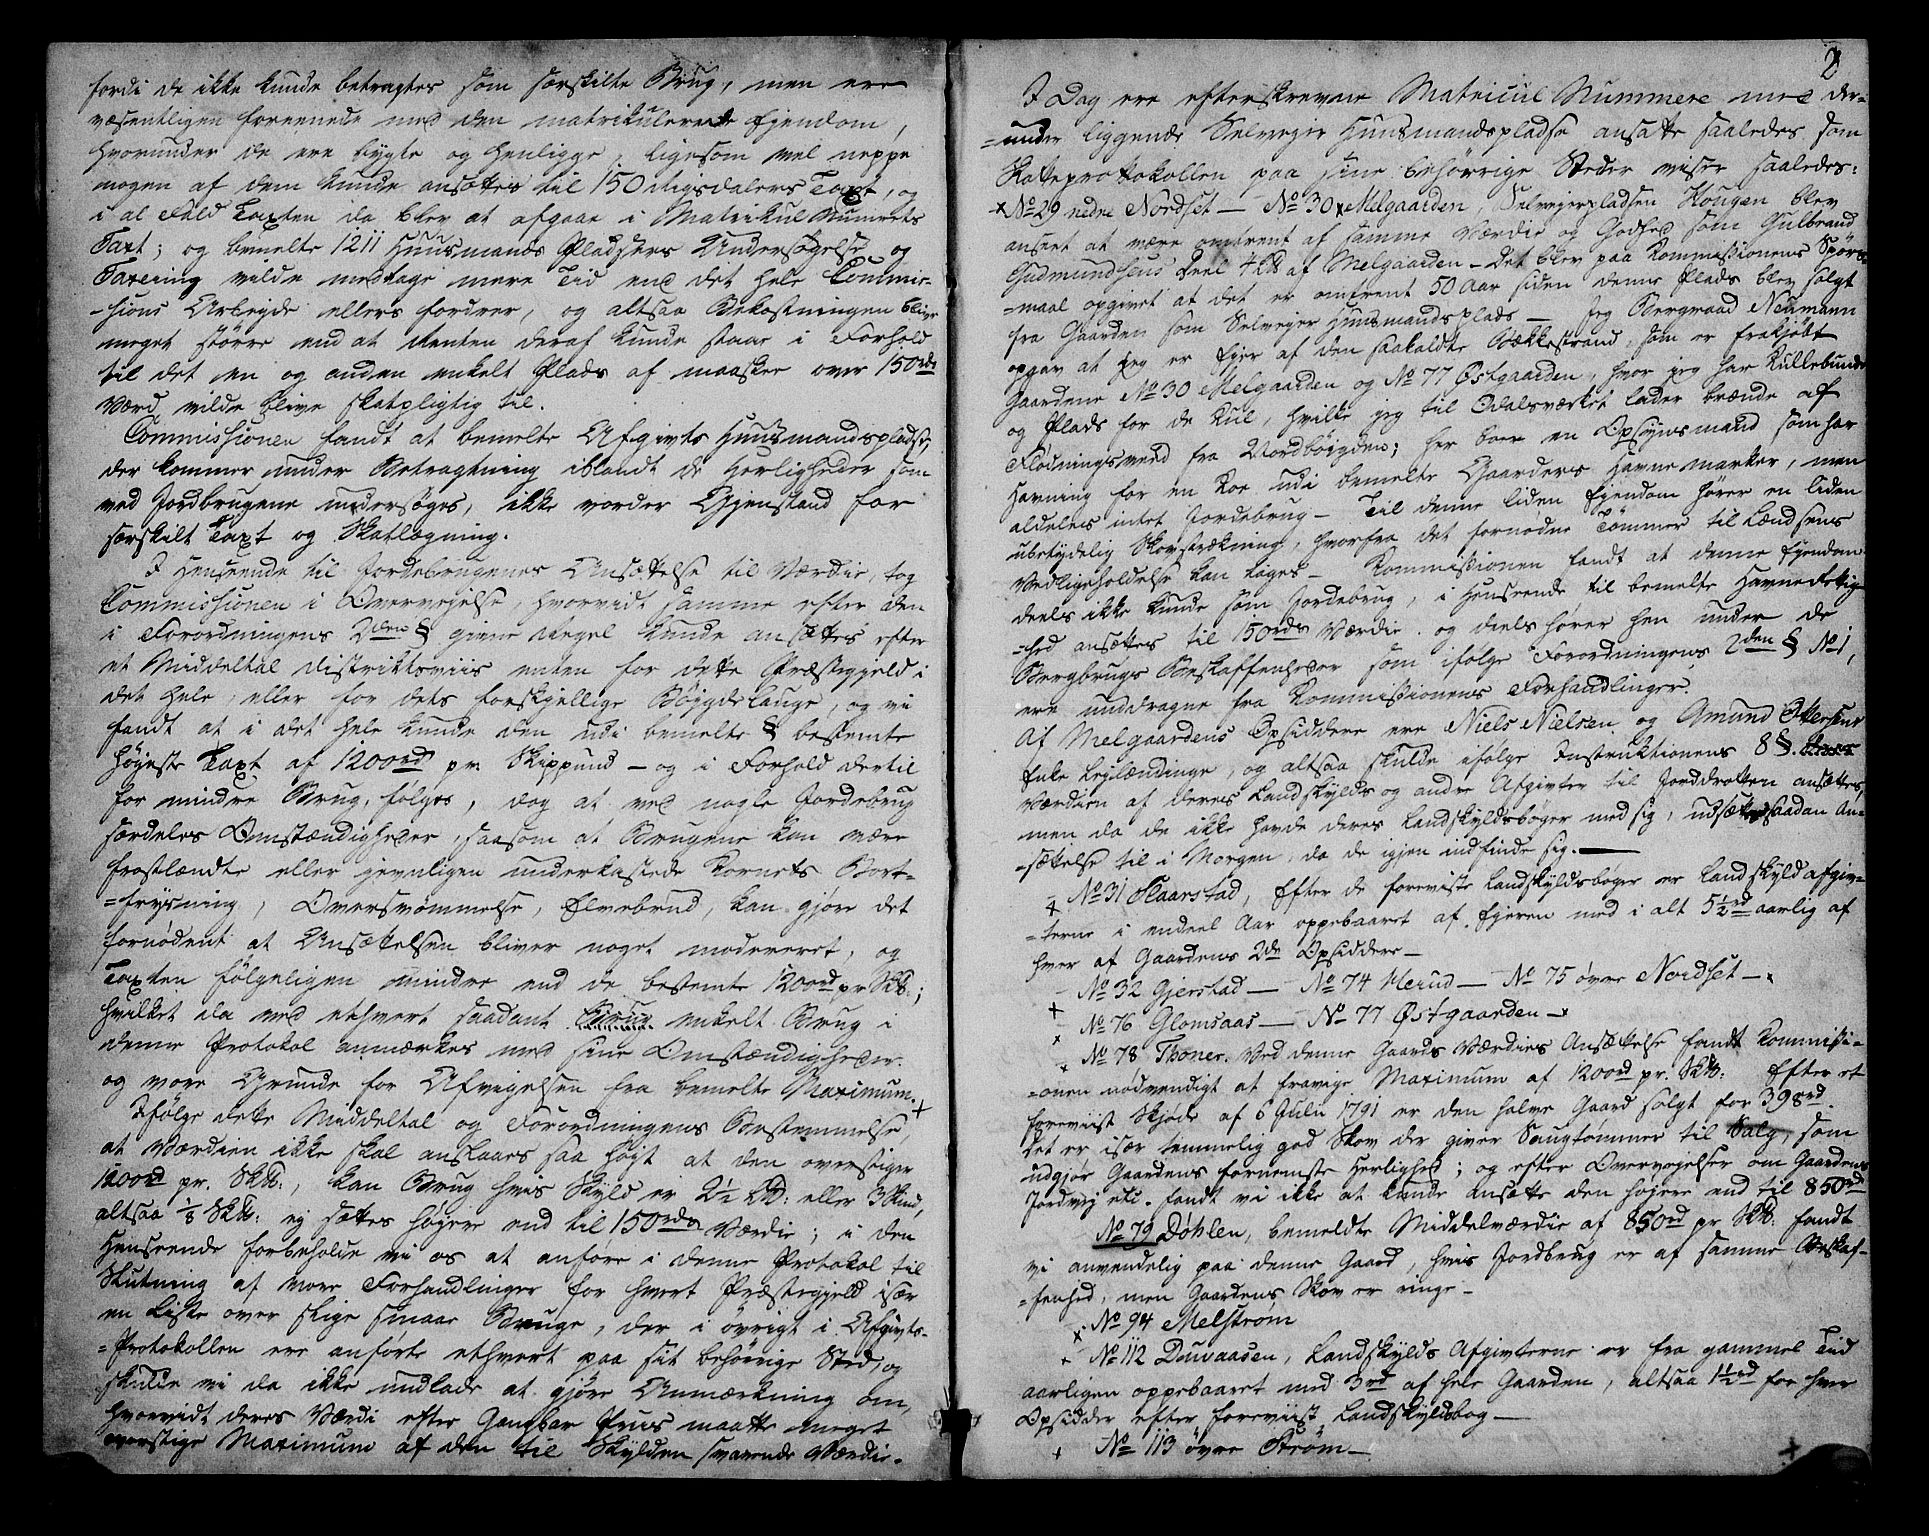 fordi de ikke kunde betragtes som særskilte Brug, men ere
væsentligen foreenede med den matrikulerede Ejendom,
hvorunder de ere bygte og henligge, ligesom vel neppe
nogen af dem kunde ansættes til 150 Rigsdalers Taxt, og
i al Fald Taxten da blev at afgaae i Matrikul Numrets
Taxt; og bemelte 1211 Huusmands Pladsers Undersøgelse og
Taxering vilde medtage mere Tid end det hele Commis-
-sions Arbeyde ellers fordrer, og altsaa Bekostningen blive
meget større end at Renten deraf kunde staae i Forhold
til det en og anden enkelt Plads af maaskee over 150rdr
Værd, vilde blive skatpligtig til.
Commissionen fandt at bemelte Afgivts Huusmandspladse,
der kommer under Betragtning iblandt de Herligheder som
ved Jordbrugene undersøges, ikke vorder Gjenstand for
særskilt Taxt og Skatlægning.
I Henseende til Jordebrugenes Ansættelse til Værdie, tog
Commissionen i Overvejelse, hvorvidt samme efter den
i Forordningens 2den § givne Regel kunde ansættes efter
et Middeltal districtsviis enten for dette Præstegjeld i
det hele, eller for dets forskjellige Bøjgdelauge, og vi
fandt at i det hele kunde den udi bemelte § bestemte
højeste Taxt af 1200rd pr. Skippund - og i Forhold dertil
for mindre Brug, følges, dog at ved nogle Jordebrug
særdeles Omstændigheder, saasom at Brugene kan være
frostlændte eller jevnligen underkastede Kornets Bort-
=frysning, Oversvømmelse, Elvebrud, kan gjøre det
fornødent at Ansættelsen bliver noget modereret, og
Taxten følgeligen mindre end de bestemte 1200rd pr Sk℔.;
hvilket da ved ethvert saadant Brug enkelt Brug i
denne Protokol anmærkes med sine Omstændigheder.
og vore Grunde for Afvigelsen fra bemelte Maximum. +
Ifølge dette Middeltal og Forordningens Bestemmelse,
at Værdien ikke skal anslaaes saa højt at den overstiger
1200rd pr. Sk℔., kan Brug hvis Skyld er 2½ L℔: eller 3 Skind,
altsaa ⅛ Sk℔: ej sættes højere end til 150rdr Værdie; i den
Henseende forbeholde vi os at anføre i denne Protokol til
Slutning af vore Forhandlinger for hvert Præstegjeld især
en Liste over slige smaae Bruge, der i øvrigt i Afgivts-
=Protokollen ere anførte ethvert paa sit behørige Sted, og
skulde vi da ikke undlade at gjøre Anmærkning om,
hvorvidt deres Værdi efter Gangbar Priis maatte meget
overstige Maximum af den til Skylden svarende Værdie.
2
I Dag ere efterskrevne Matricul Nummere med der-
=under liggende Selvejer Huusmandspladse ansatte saaledes som
Skatteprotokollen paa sine behørige Steder viser saaledes:
× No 29 nedre Nordset - No 30 × Melgaarden, Selvejerpladsen Hougen blev
anseet at være omtrent af samme Værdie og Godhed som Gulbrand
Gudmundsens Deel 4 L℔ af Melgaarden - Det blev paa Kommissionens Spørs-
=maal opgivet at det er omtrent 50 Aar siden denne Plads blev solgt
fra Gaarden som Selvejer Huusmandsplads - Jeg Bergraad Neumann
opgav at jeg er Ejer af den saakaldte Bækkestrand, som er frakjøbt
Gaardene No 30 Melgaarden og No 77 Østgaarden, hvor jeg har Kullebunde
og Plads for de Kul, hvilke jeg til Odalsværket lader brænde af
Flødningsveed fra Nordbøigden; her boer en Opsynsmand som har
Havning for en Koe udi bemelte Gaarders Havnemarker, men
aldeles intet Jordebrug - Til denne liden Ejendom hører en liden
ubetydelig Skovstrækning, hvorfra det fornødne Tømmer til Lændsens
Vedligeholdelse kan tages - Kommissionen fandt at denne Ejendom
deels ikke kunde som Jordebrug, i Henseende til bemelte Havnerettig-
=hed ansættes til 150rdr Værdie. og deels hører hen under de
Bergbrugs Beskaffenheder som ifølge Forordningens 2den § No 1,
ere unddragne fra Kommissionens Forhandlinger.
Af Melgaardens Opsiddere ere Niels Nielsen og Amund Ottersens
Enke Leglændinge, og altsaa skulde ifølge Instruktionens 8 §.
Værdien af deres Landskylds og andre Afgivter til Jorddrotten ansættes,
men da de ikke havde deres Landskyldsbøger med sig, udsættes saadan An-
=sættelse til i Morgen, da de igjen indfinde sig.
+ No 31 Skaarstad, Efter de foreviste Landskyldsbøger er Landskyldafgiv-
=terne i endeel Aar oppebaaret af Ejeren med i alt 5½rd aarlig af
hver af Gaardens 2de Opsiddere -
No 32 Gjerstad - No 74 Herud - No 75 øvre Nordset -
+ No 76 Glomsaas - No 77 Østgaarden -
× No 78 Thoner. Ved denne Gaards Værdies Ansættelse fandt Kommissi-
=onen nødvendigt at fravige Maximum af 1200rd pr. Sk℔: Efter et
foreviist Skjøde af 6 Julii 1791 er den halve Gaard solgt for 398rd.
Det er især temmelig god Skov der giver Saugtømmer til Salg, som
udgjør Gaardens fornemste Herlighed; og efter Overvejelser om Gaardens
Jordvej etc. fandt vi ikke at kunde ansætte den højere end til 850rd
No 79 Døhlen, bemeldte Middelværdie af 850rd pr Sk℔: fandt
vi anvendelig paa denne Gaard, hvis Jordbrug er af samme Beskaf-
=fenhed, men Gaardens Skov er ringe -
× No 94 Melstrøm
+ No 112 Duvaasen, Landskylds Afgivterne er fra gammel Tid
aarligen oppebaaret med 3rd af hele Gaarden, altsaa 1½rd for hver
Opsidder efter foreviist Landskyldsbog -
+ No 113 øvre Strøm - +